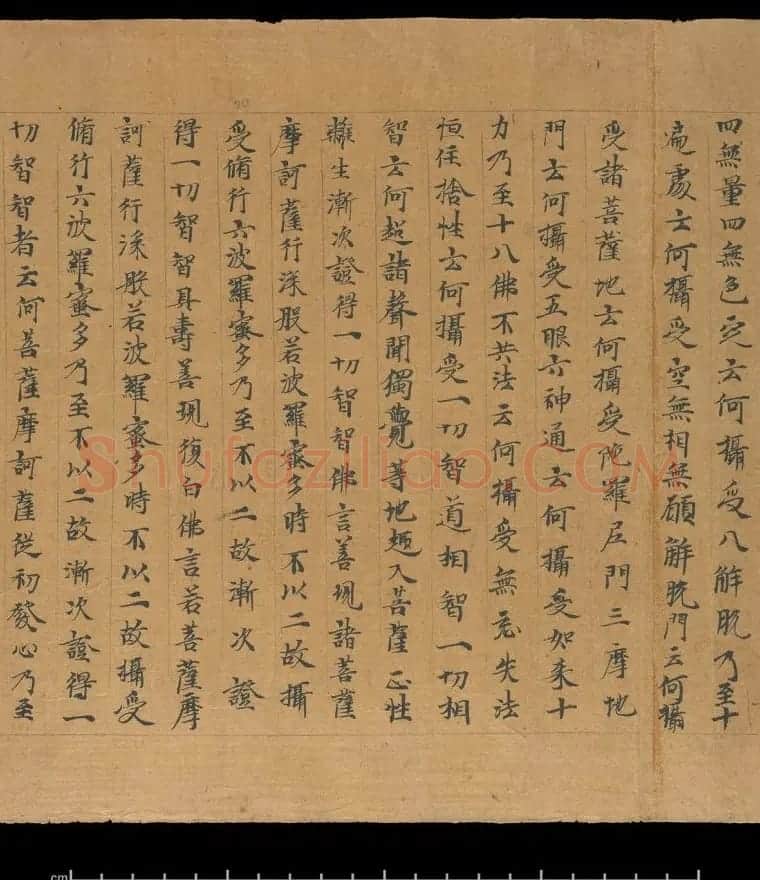 四無量四無色定云何攝受八解脫乃至十
遍處云何攝受空無相無願解脫門云何攝
受諸菩薩地云何攝受陀羅尼門三摩地
門云何攝受五眼六神通云何攝受如來十
力乃至十八佛不共法云何攝受無忘失法
恒住捨性云何攝受一切智道相智一切相
智云何超諸聲聞獨覺等地趣入菩薩正性
離生漸次證得一切智智佛言善現諸菩薩
摩訶薩行深般若波羅蜜多時不以二故攝
受脩行六波羅蜜多乃至不以二故漸次證
得一切智智具壽善現復白佛言若菩薩摩
訶薩行深般若波羅蜜多時不以二故攝受
脩行六波羅蜜多乃至不以二故漸次證得一
切智智者云何菩薩摩訶薩從初發心乃至
Shufaziliao.COM
cm